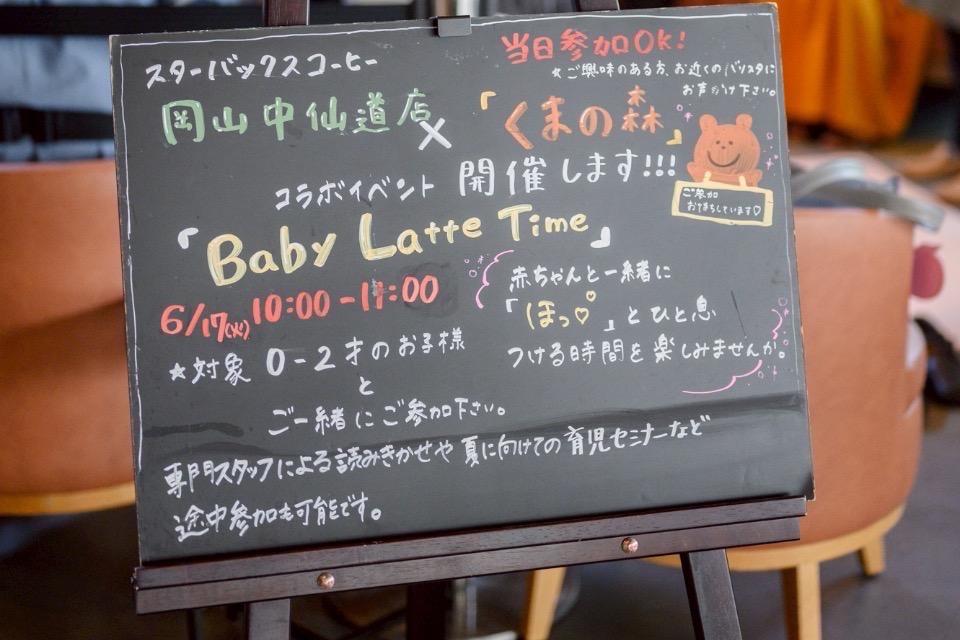 スターバックスコーヒー
岡山中仙道店
×
当日参加OK!
★ご興味のある方、お近くのバリスタに
お声がけ下さい。
「くまの森」
コラボイベント 開催します!!!
ご参加
お待ちしています♡
「Baby Latte Time」
6/17(火) 10:00-11:00
赤ちゃんと一緒に
「ほっ♡」とひと息
つける時間を楽しみませんか。
★対象 0-2才のお子様
と
ご一緒にご参加下さい。
専門スタッフによる読みきかせや 夏に向けての育児セミナーなど
途中参加も可能です。